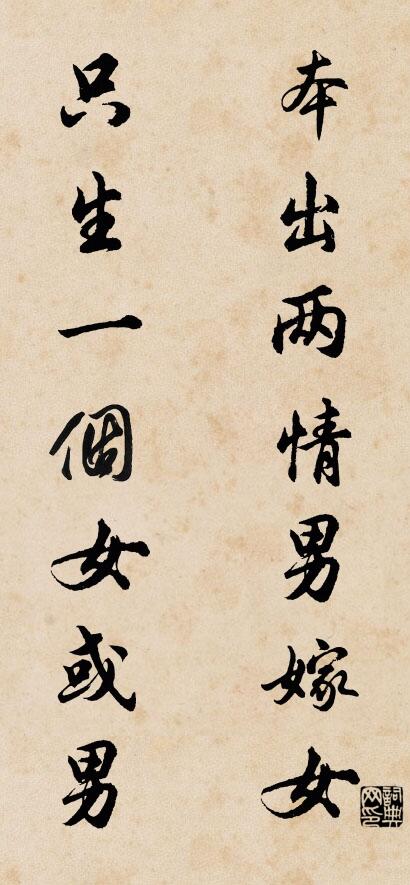 本出两情男嫁女
只生一個女或男
詞典网印